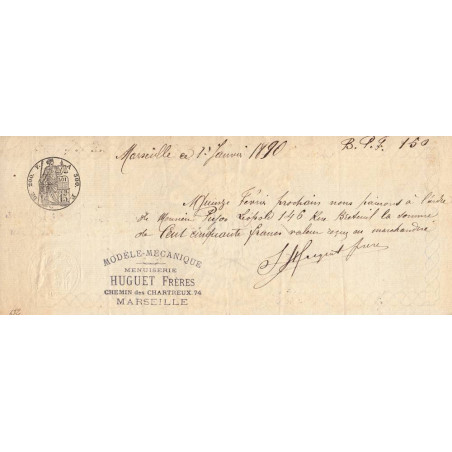 Marseille le 1er Janvier 1890 B.P.F. 150
Quinze Févier prochain nous paierons à l'ordre
de Monsieur Léopold 146 Rue Breteuil la somme
de Cent cinquante francs valeur reçue en marchandise
Huguet frères
MODÈLE-MÉCANIQUE
MENUISERIE
HUGUET FRÈRES
CHEMIN des CHARTREUX. 74
MARSEILLE